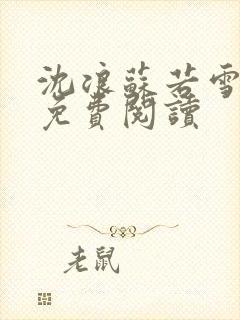 沈浪蘇若雪
免費閱讀
老鼠